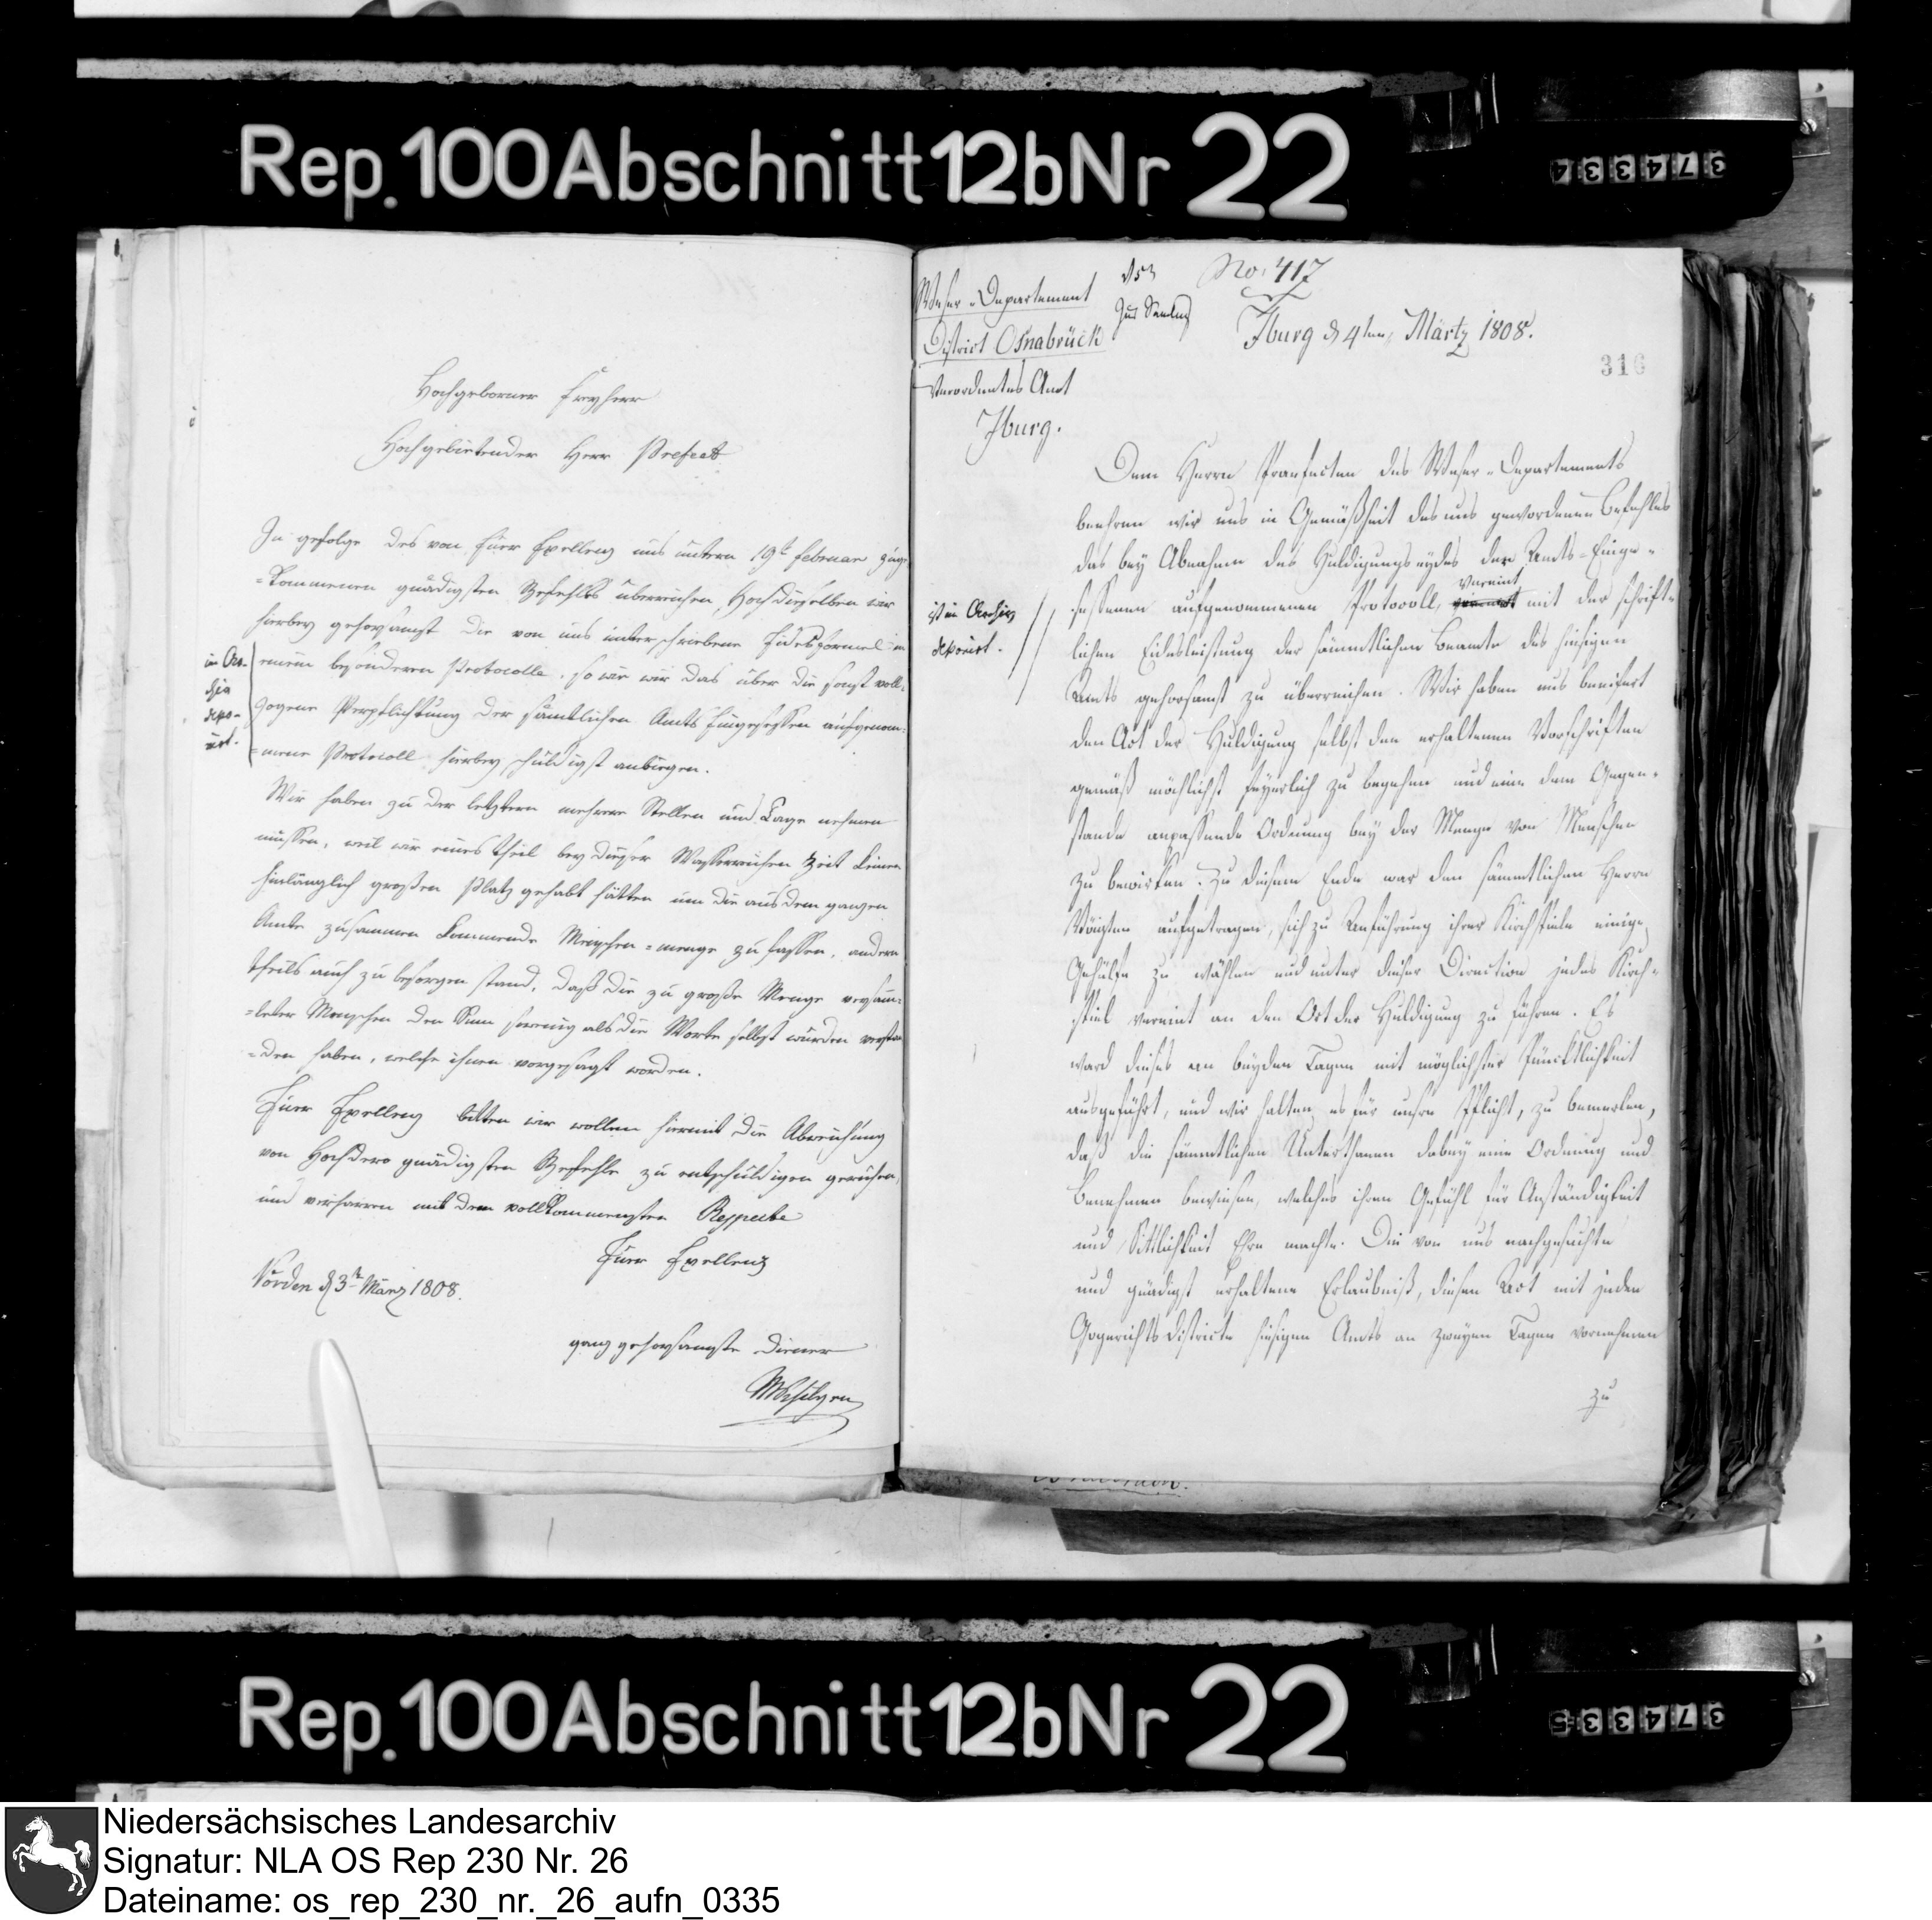 Rep. 100 Abschnitt 12b Nr 22
374334
Hochgeborner Freyherr
Hochgebietender Herr Prefect
In gefolge des von Euer Exellenz uns unterm 19t Februar zuge-
=kommenen gnädigsten Befehles überreichen Hochdieselben wir
hierbey gehorsamst die von uns unterschriebene Eidesformel in
einem besonderen Protocolle, so wie wir das über die sonst voll-
zogene Verpflichtung der sämtlichen Amts Eingesessen aufgenom-
=mene Protocoll hierbey schuldigst anbiegen.
in Ar-
chiv
depo-
nirt.
Wir haben zu der letztern mehrere Stellen und Tage nehmen
müssen, weil wir eines theil bey dieser Wasserreichen Zeit keinen
hinlänglich großen Platz gehabt hätten um die aus dem ganzen
Amte zusammen kommende Menschen=menge zu fassen, andern
theils auch zu besorgen stand, daß die zu große Menge versam-
=leter Menschen den Sinn so wenig als die Worte selbst würden verstan-
=den haben, welche ihnen vorgesagt worden.
Euer Exellenz bitten wir wollen hiermit die Abweichung
von Hochdero gnädigsten Befehle zu entschuldigen geruhen,
und verharren mit dem vollkommensten Respecte
Euer Exellenz
Vörden d 3t März 1808.
ganz gehorsamste Diener
Weser-Departement
District Osnabrück
Verordnetes Amt
Iburg.
No. 417
Iburg d 4ten Märtz 1808.
316
Dem Herrn Praefecten des Weser-Departements
beehren wir uns in Gemäßheit des uns gewordenen Befehles
das bey Abnahme des Huldigungseydes der Amts-Einge-
sessenen aufgenommenen Protocoll, vereint mit der schrift-
lichen Eidesleistung der sämmtlichen Beamte des hiesigen
Amts gehorsamst zu überreichen. Wir haben uns beeifert
ist im Archiv
deponirt.
den Act der Huldigung selbst den erhaltenen Vorschriften
gemäß möchlichst feyerlich zu begehen und eine dem Gegen-
stande anpassende Ordnung bey der Menge von Menschen
zu bewirken. Zu diesem Ende war den sämmtlichen Herrn
Vöigten aufgetragen, sich zu Anführung ihrer Kirchspiele einige
Gehülfe zu wählen und unter dieser Direction jedes Kirch-
spiel vereint an den Ort der Huldigung zu führen. Es
ward dieses an beyden Tagen mit möglichster Pünctlichkeit
ausgeführt, und wir halten es für unsre Pflicht, zu bemerken,
daß die sämmtlichen Unterthanen dabey eine Ordnung und
Benehmen bewiesen, welches ihren Gefühl für Anständigkeit
und Sittlichkeit Ehre machte. Die von uns nachgesuchte
und gnädigst erhaltene Erlaubniß, diesen Act mit jeden
Gogerichts Districte hiesigen Amts an zweyen Tagen vornehmen
zu
Rep. 100 Abschnitt 12b Nr 22
374335
Niedersächsisches Landesarchiv
Signatur: NLA OS Rep 230 Nr. 26
Dateiname: os_rep_230_nr._26_aufn_0335